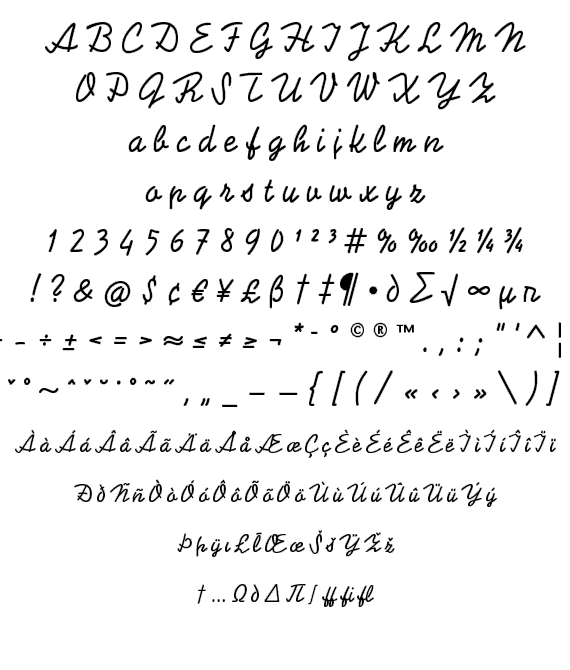 A B C D E F G H I J K L M N
O P Q R S T U V W X Y Z
a b c d e f g h i j k l m n
o p q r s t u v w x y z
1 2 3 4 5 6 7 8 9 0 ¹ ² ³ # % ‰ ½ ¼ ¾
! ? & @ $ ¢ € ¥ £ β † ‡ ¶ • ∂ Σ √ ∞ μ π
- ÷ ± < = > ≈ ≤ ≠ ≥ ¬ * - º © ® ™ . , : ; " ' ^ ¦
ˇ ° ~ ˆ ˇ ˘ ˙ ° ˜ ˝ ‚ „ _ – — { [ ( / « ‹ › » \ ) ]
À à Á á Â â Ã ã Ä ä Å å Æ æ Ç ç È è É é Ê ê Ë ë Ì ì Í í Î î Ï ï
Ð ð Ñ ñ Ò ò Ó ó Ô ô Õ õ Ö ö Ù ù Ú ú Û û Ü ü Ý ý
Þ þ ÿ ı Ł ł Œ œ Š š Ÿ Ž ž
† … Ω ∂ Δ Π ∫ ff fi fl